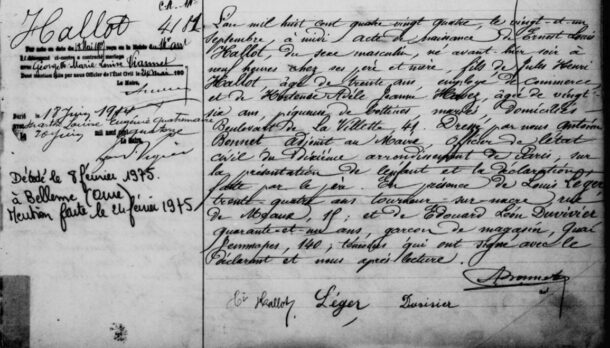 Hallot
4112
Par acte en date du
a contracté mariage
Georgette Marie Louise
par nous Officier de l'État Civil
Le Maire,
Marié le 18 juin 1914
Eugénie
20 juin
Décédé le 8 février 1975
à Bellême (Orne)
Mention faite le 24 février 1975
L'an mil huit cent quatre vingt quatre, le vingt et un
Septembre à midi acte de naissance de Ernest Louis
Hallot, du sexe masculin, né avant hier soir à
neuf heures chez ses père et mère, fils de Jules Henri
Hallot, âgé de trente ans, employé de commerce
et de Hortense Adèle Jeanne, âgée de vingt
six ans, piqueuse de bottines mariés, domiciliés
Boulevart de La Villette 41. Dressé par nous Antoine
Bonnet adjoint au Maire Officier de l'état
civil du Dixième arrondissement de Paris, sur
la présentation de l'enfant et la déclaration
faite par le père. En présence de Louis Léger,
trente quatre ans tourneur sur nacre, rue
de Meaux, et de Edouard Léon Duvivier
quarante et un ans, garçon de magasin, Quai
Jemmapes, 140; témoins qui ont signé avec le
déclarant et nous après lecture.
ABonnet
Hallot Léger Duvivier